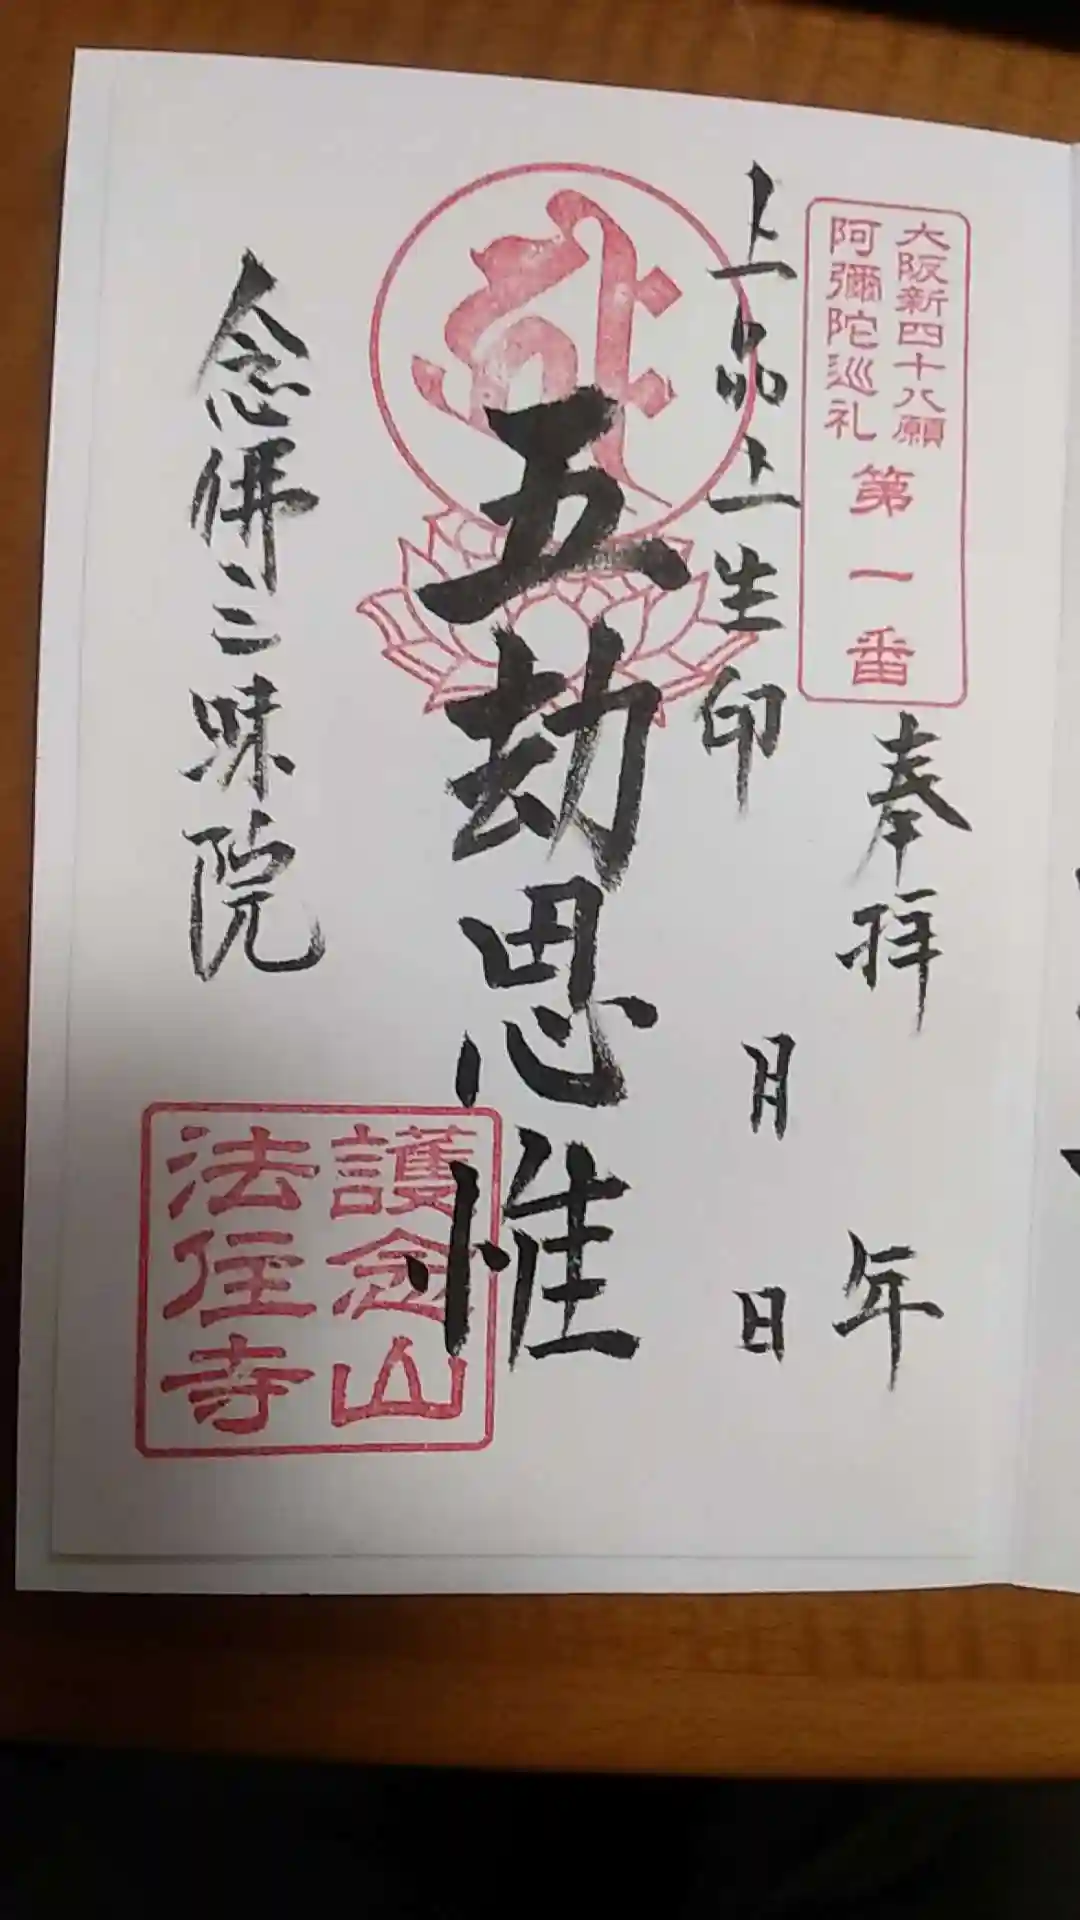 大阪新四十八願
阿彌陀巡礼
第一番
奉拝
年
上品上生印
月
日
五劫思惟
念佛三昧院
護念山
法住寺